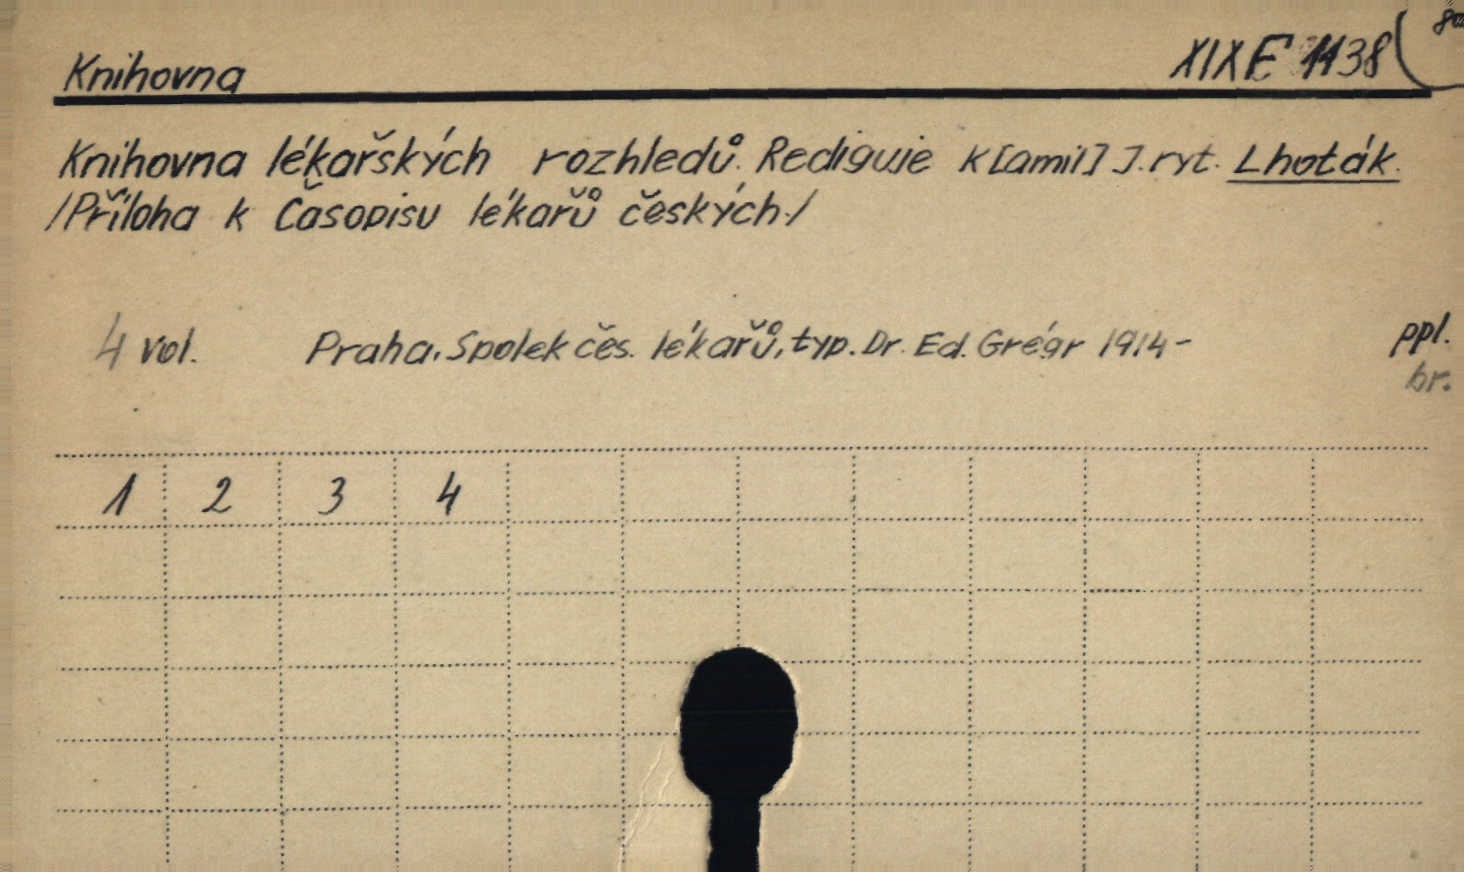 Knihovna XIX E 1138
Knihovna lékařských rozhledů. Rediguje K[amil] J. ryt. Lhoták.
/Příloha k Časopisu lékařů českých./
4 vol. Praha, Spolek čes. lékařů, typ. Dr. Ed. Grégr 1914- ppl.
br.
1 2 3 4